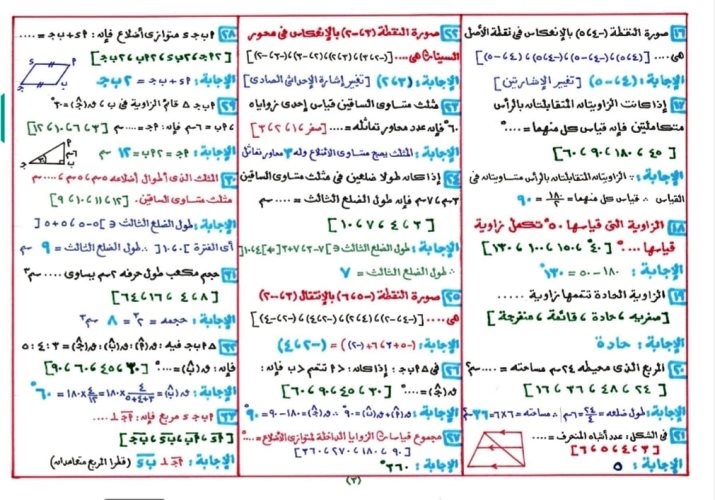 ١٦ صورة النقطة (-٥، ٤) بالإنعكاس في نقطة الأصل
هى .... [(٤،٥)، (-٤،-٥)، (-٤،٥)، (٤،-٥)]
الإجابة: (٤،-٥) [تغيير الإشارتين]
١٧ إذا كانت الزاويتان المتقابلتان بالرأس
متكاملتين فإن قياس كل منهما = ....°
[٤٥، ١٨٠، ٩٠، ٦٠]
الإجابة: ∵ الزاويتان المتقابلتان بالرأس متساويتان فى
القياس ∴ قياس كل منهما = ١٨٠/٢ = ٩٠
١٨ الزاوية التى قياسها ٥٠° تكمل زاوية
قياسها ....° [٤٠، ١٥٠، ١٠٠، ١٣٠]
الإجابة: ١٨٠ - ٥٠ = ١٣٠°
١٩ الزاوية الحادة تتممها زاوية .....
[صفرية، حادة، قائمة، منفرجة]
الإجابة: حادة
٢٠ المربع الذى محيطه ٢٤ سم مساحته = .... سم٢
[٢٤، ٤٨، ٣٦، ١٦]
الإجابة: طول ضلعه = ٢٤/٤ = ٦ سم ∴ مساحته = ٦×٦ = ٣٦ سم٢
٢١ فى الشكل: عدد أشباه المنحرف = ....
[٣، ٤، ٥، ٦]
الإجابة: ٥
٢٢ صورة النقطة (٣،-٢) بالإنعكاس فى محور
السينات هى ....
الإجابة: (٣،٢) [تغيير إشارة الإحداثى الصادى]
٢٣ مثلث متساوى الساقين قياس إحدى زواياه
٦٠° فإن عدد محاور تماثله = .... [صفر، ١، ٢، ٣]
الإجابة: المثلث يصبح متساوى الأضلاع وله ٣ محاور تماثل
٢٤ إذا كان طولا ضلعين فى مثلث متساوى الساقين
٣ سم، ٧ سم فإن طول الضلع الثالث = .... سم
[٣، ٤، ٧، ١٠]
الإجابة: طول الضلع الثالث ∈ ]٧-٣، ٧+٣[ = ]٤، ١٠[
∴ طول الضلع الثالث = ٧
٢٥ صورة النقطة (-٥، ٦) بالإنتقال (٣، -٢)
هى .... [(-٢،-٤)، (٢،٤)، (-٢،٤)، (٢،-٤)]
الإجابة: (-٥+٣، ٦+(-٢)) = (-٢، ٤)
٢٦ فى △ أ ب جـ: إذا كان: > أ تتمم > ب فإن:
ق(جـ) = ....° [٣٠، ٤٥، ٩٠، ٦٠]
الإجابة: ∵ ق(أ)+ق(ب) = ٩٠° ∴ ق(جـ) = ١٨٠ - ٩٠ = ٩٠°
٢٧ مجموع قياسات الزوايا الداخلة لمتوازى الأضلاع = ....°
[٩٠، ١٨٠، ٢٧٠، ٣٦٠]
الإجابة: ٣٦٠°
٢٨ أ ب جـ د متوازى أضلاع فإن: أد + ب جـ = ....
[٢أجـ، ٢ب د، ٢أب، ٢ب جـ]
الإجابة: أد + ب جـ = ٢ب جـ
٢٩ أ ب جـ △ قائم الزاوية فى ب، ق(جـ) = ٣٠°
أب = ٦ سم فإن: أجـ = .... سم [٣، ٦، ١٠، ١٢]
الإجابة: أجـ = ٢أب = ١٢ سم
٣٠ المثلث الذى أطوال أضلاعه ٥ سم، ٥ سم، .... سم
مثلث متساوى الساقين. [٩، ١٠، ١١، ١٢]
الإجابة: طول الضلع الثالث ∈ ]٥-٥، ٥+٥[
أى الفترة ]٠، ١٠[ ∴ طول الضلع الثالث = ٩ سم
٣١ حجم مكعب طول حرفه ٢ سم يساوى .... سم٣
[٨، ٤، ١٦، ٦٤]
الإجابة: حجمه = ٢٣ = ٨ سم٣
٣٢ △ أ ب جـ فيه: ق(أ): ق(ب): ق(جـ) = ٣ : ٤ : ٥
فإن: ق(ب) = ....° [٣٠، ٤٥، ٦٠، ٩٠]
الإجابة: ق(ب) = ٤/(٣+٤+٥) × ١٨٠ = ٤/١٢ × ١٨٠ = ٦٠°
٣٣ أ ب جـ د مربع فإن: أجـ ⊥ ....
[أد، أب، ب د، ب جـ]
الإجابة: أجـ ⊥ ب د (قطرا المربع متعامدان)
(٣)